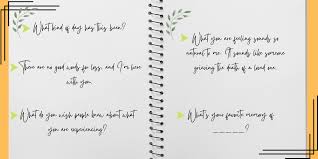 What kind of day has this been?
There are no good words for loss, and I'm here
with you
What do you wish people knew about what
you are experiencing?
What you are feeling sounds so
natural to me. It sounds like someone
grieving the death of a loved one.
What's your favorite memory of
_ _ _ _ _?